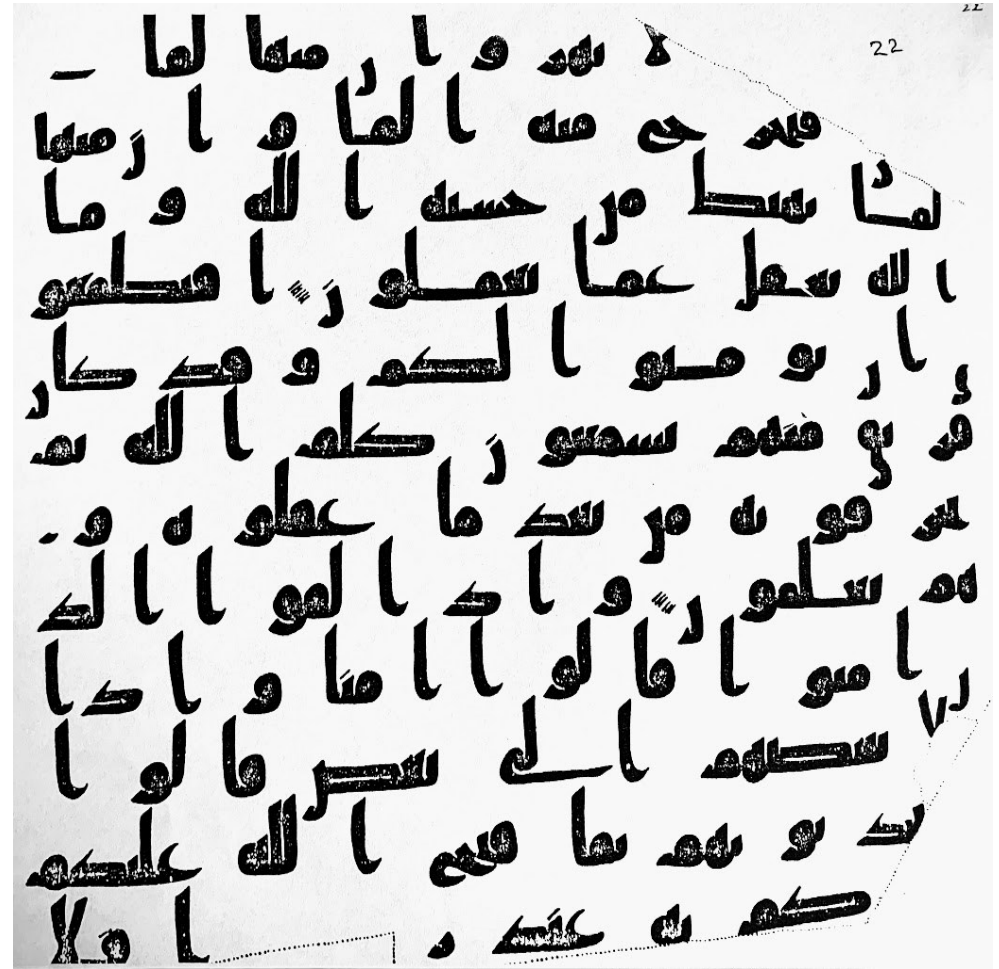 22
22
لانهر و ان منها لما
فيخرج منه الما و ان منها
لما يهبط من خشية الله و ما
الله بغفل عما تعملون افتطمعو
ن ان يومنوا لكم و قد كان
فريق منهم يسمعون كلم الله ثم
يحرفونه من بعد ما عقلوه و
هم يعلمون و اذا لقوا الذ
ين امنوا قالوا امنا و اذا
لا بعضهم الى بعض قالوا
تحدثونهم بما فتح الله عليكم
كم به عند ر افلا